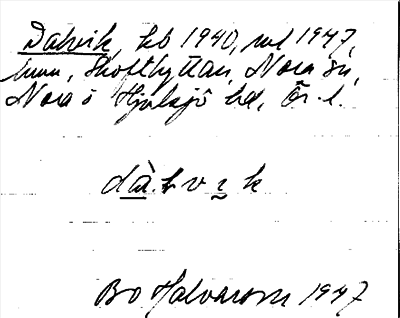 Dalvik, kb 1940, rul 1947,
hmn, Skotthyttan, Nora sn,
Nora o Hjulsjö hd, Ör. l.
dà.l v ị k
Bo Halvarson 1947